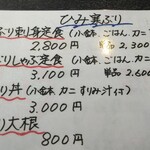 ひみ寒ぶり
ぶり刺身定食(小鉢、ごはん、カニ
2,800円 単品 2,300
ぶりしゃぶ定食(小鉢、ごはん、カニ
3,100円 単品 2,600
り丼(小鉢 カニすりみ汁付)
3,000円
り大根
800円